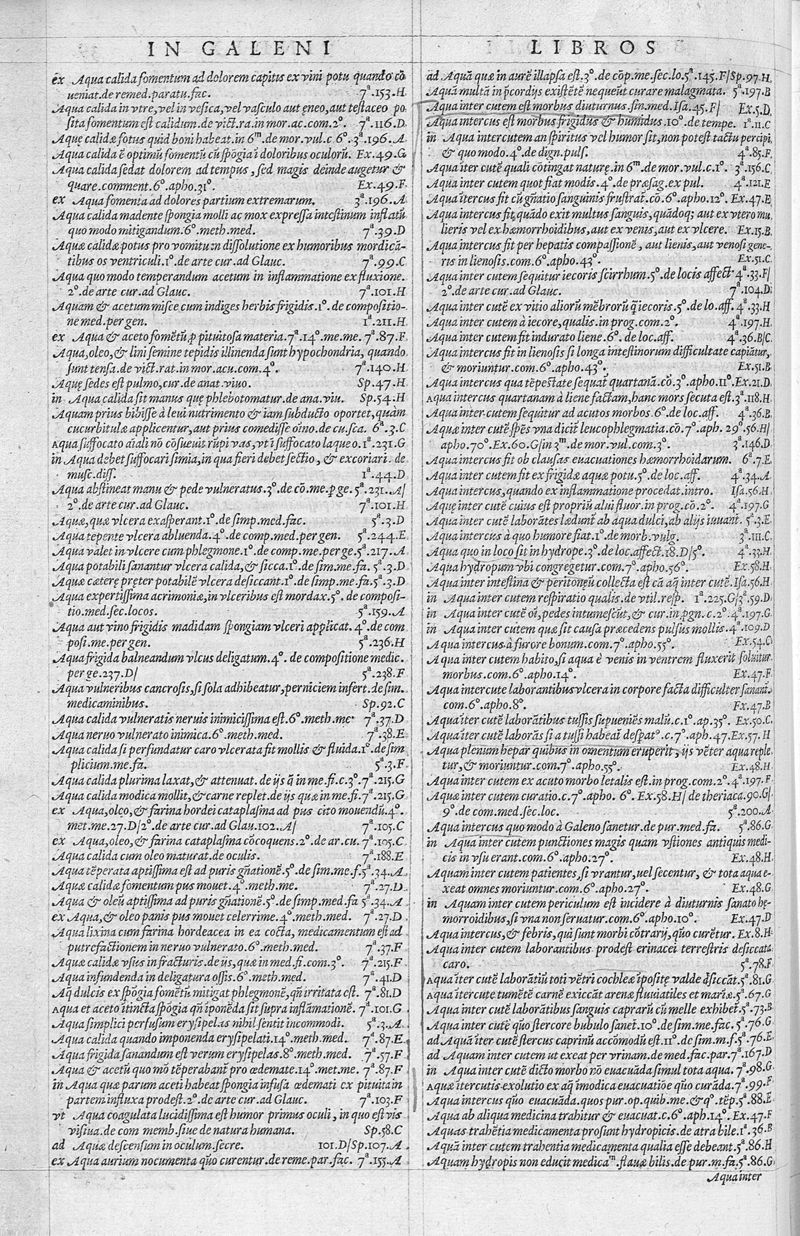 IN GALENI
ex Aqua calida fomentum ad dolorem capitis ex vini potu quando cō
ueniat.de remed.paratu.fac. 7ª.153.H
Aqua calida in vtre,vel in vesica,vel vasculo aut ęneo,aut testaceo po
sita fomentum est calidum.de vict.ra.in mor.ac.com.2º. 7ª.116.D
Aquę calidæ fotus quid boni habeat.in 6ᵐ.de mor.vul.c 6º. 3ª.196.A
Aqua calida ē optimū fomentū cū spōgia ī doloribus oculorū. Ex.49.G
Aqua calida sedat dolorem ad tempus, sed magis deinde augetur &
quare.comment.6º.apho.31º. Ex.49.F
ex Aqua fomenta ad dolores partium extremarum. 3ª.196.A
Aqua calida madente spongia molli ac mox expressa intestinum inflatū
quo modo mitigandum.6º.meth.med. 7ª.39.D
Aquæ calidæ potus pro vomitu in dissolutione ex humoribus mordicā-
tibus os ventriculi.1º.de arte cur.ad Glauc. 7ª.99.C
Aqua quo modo temperandum acetum in inflammatione ex fluxione.
2º.de arte cur.ad Glauc. 7ª.101.H
Aquam & acetum misce cum indiges herbis frigidis.1º.de compositio-
ne med.per gen. 1ª.211.H
ex Aqua & aceto fomētū,p pituitosa materia.7ª.14º.me.me. 7ª.87.F
Aqua,oleo,& lini semine tepidis illinenda sunt hypochondria, quando
sunt tensa.de vict.rat.in mor.acu.com.4º. 7ª.140.H
Aquę sedes est pulmo,cur.de anat.viuo. Sp.47.H
in Aqua calida sit manus quę phlebotomatur.de ana.viu. Sp.54.H
Aquam prius bibisse à leui nutrimento & iam subducto oportet,quam
cucurbitulæ applicentur,aut prius comedisse oīno.de cu.sca. 6ª.3.C
Aqua suffocato aīali nō cōsueuit rūpi vas,vt ī suffocato laqueo.1ª.231.G
in Aqua debet suffocari simia,in qua fieri debet sectio, & excoriari. de
musc.diss. 1ª.44.D
Aqua abstineat manu & pede vulneratus.3º.de cō.me.p ge.5ª.231.A/
2º.de arte cur.ad Glauc. 7ª.101.H
Aquæ,quæ vlcera exasperant.1º.de simp.med.fac. 5ª.3.D
Aqua tepente vlcera abluenda.4º.de comp.med.per gen. 5ª.244.E
Aqua valet in vlcere cum phlegmone.1º.de comp.me.per ge.5ª.217.A
Aqua potabili sanantur vlcera calida,& sicca.1º.de sim.me.fa. 5ª.3.D
Aquæ cæterę pręter potabilē vlcera desiccant.1º.de simp.me.fa.5ª.3.D
Aqua expertissima acrimoniæ,in vlceribus est mordax.5º.de composi-
tio.med.sec.locos. 5ª.159.A
Aqua aut vino frigidis madidam spongiam vlceri applicat.4º.de com
posi.me.per gen. 5ª.236.H
Aqua frigida balneandum vlcus deligatum.4º.de compositione medic.
per ge.237.D/ 5ª.238.F
Aqua vulneribus cancrosis,si sola adhibeatur,perniciem infert.de sim.
medicaminibus. Sp.92.C
Aqua calida vulneratis neruis inimicissima est.6º.meth.me 7ª.37.D
Aqua neruo vulnerato inimica.6º.meth.med. 7ª.38.E
Aqua calida si perfundatur caro vlcerata fit mollis & fluida.1º.de sim
plicium.me.fa. 5ª.3.F
Aqua calida plurima laxat,& attenuat.de ijs q̄ in me.fi.c.3º.7ª.215.G
Aqua calida modica mollit,& carne replet.de ijs quæ in me.fi.7ª.215.G
ex Aqua,oleo,& farina hordei cataplasma ad pus cito mouendū.4º.
met.me.27.D/2º.de arte cur.ad Glau.102.A/ 7ª.105.C
ex Aqua,oleo,& farina cataplasma cōcoquens.2º.de ar.cu. 7ª.105.C
Aqua calida cum oleo maturat.de oculis. 7ª.188.E
Aqua tēperata aptissima est ad puris gn̄ationē.5º.de sim.me.f.5ª.34.A
Aquæ calidæ fomentum pus mouet.4º.meth.me. 7ª.27.D
Aqua & oleū aptissima ad puris gn̄ationē.5º.de simp.med.fa 5ª.34.A
ex Aqua,& oleo panis pus mouet celerrime.4º.meth.med. 7ª.27.D
Aqua lixiua cum farina hordeacea in ea cocta, medicamentum est ad
putrefactionem in neruo vulnerato.6º.meth.med. 7ª.37.F
Aquæ calidæ vsus in fracturis.de ijs,quæ in med.fi.com.3º. 7ª.215.F
Aqua infundenda in deligatura ossis.6º.meth.med. 7ª.41.D
Aq̄ dulcis ex spōgia fomētū mitigat phlegmonē,qn̄ irritata est. 7ª.81.D
Aqua et aceto ītincta spōgia qn̄ īponēda sit supra inflāmationē. 7ª.101.G
Aqua simplici perfusum erysipelas nihil sentit incommodi. 5ª.3.A
Aqua calida quando imponenda erysipelati.14º.meth.med. 7ª.87.E
Aqua frigida sanandum est verum erysipelas.8º.meth.med. 7ª.57.F
Aqua & acetū quo mō tēperabanī pro œdemate.14º.met.me. 7ª.87.F
in Aqua quæ parum aceti habeat spongia infusa œdemati cx pituita in
partem influxa prodest.2º.de arte cur.ad Glauc. 7ª.103.F
vt Aqua coagulata lucidissima est humor primus oculi, in quo est vis
visiua.de com memb.siue de natura humana. Sp.58.C
ad Aquæ descensum in oculum.secre. 101.D/Sp.107.A
ex Aqua aurium nocumenta qūo curentur.de reme.par.fac. 7ª.155.A
LIBROS
ad Aquā quæ in aurē illapsa est.3º.de cōp.me.sec.lo.5ª.145.F/Sp.97.H
Aquā multā in p̄cordijs existētē nequeūt curare malagmata. 5ª.197.B
Aqua inter cutem est morbus diuturnus.fin.med.Isa.45.F/ Ex.5.D
Aqua intercus est morbus frigidus & humidus.10º.de tempe. 1ª.11.C
in Aqua intercutem an spiritus vel humor sit,non potest tactu percipi,
& quo modo.4º.de dign.puls. 4ª.85.F
Aqua īter cutē quali cōtingat nature.in 6ᵐ.de mor.vul.c.1º. 3ª.156.C
Aqua inter cutem quot fiat modis.4º.de præsag.ex pul. 4ª.121.E
Aqua ītercus fit cū gn̄atio sanguinis frustraī.co.6º.apho.12º. Ex.47.E
Aqua intercus fit,quādo exit multus sanguis,quādoq; aut ex vtero mu
lieris vel ex hæmorrhoidibus,aut ex venis,aut ex vlcere. Ex.15.B
Aqua intercus fit per hepatis compassionē, aut lienis, aut venosi gene-
ris in lienosis.com.6º.apho.43º. Ex.51.C
Aqua inter cutem sequitur iecoris scirrhum.5º.de locis affect 4ª.33.F/
2º.de arte cur.ad Glauc. 7ª.104.D
Aqua inter cutē ex vitio aliorū mēbrorū q̄ iecoris.5º.de lo.aff. 4ª.33.H
Aqua inter cutem à iecore,qualis.in prog.com.2º. 4ª.197.H
Aqua inter cutem fit indurato liene.6º.de loc.aff. 4ª.36.B/C
Aqua intercus fit in lienosis si longa intestinorum difficultate capiātur,
& moriuntur.com.6º.apho.43º. Ex.51.B
Aqua intercus qua tēpestate sequaī quartanā.cō.3º.apho.11º.Ex.21.D
Aqua intercus quartanam à liene factam,hanc mors secuta est.3ª.118.H
Aqua inter cutem sequitur ad acutos morbos.6º.de loc.aff. 4ª.36.B
Aquæ inter cutē spēs vna dicit leucophlegmatia.cō.7º.aph.29º.56.H/
apho.70º.Ex.60.G/in 3ᵐ.de mor.vul.com.3º. 3ª.146.D
Aqua intercus fit ob clausas euacuationes hæmorrhoidarum. 6ª.7.E
Aqua inter cutem fit ex frigidæ aquæ potu.5º.de loc.aff. 4ª.34.A
Aqua intercus,quando ex inflammatione procedat.intro. Isa.56.H
Aquę inter cutē cuius est propriū alui fluor.in prog.cō.2º. 4ª.197.G
Aqua inter cutē laborātes lædunt ab aqua dulci,ab alijs iuuant. 5ª.3.E
Aqua intercus à quo humore fiat.1º.de morb.vulg. 3ª.111.C
Aqua quo in loco sit in hydrope.3º.de loc.affect.18.D/5º. 4ª.33.H
Aqua hydropum vbi congregetur.com.7º.apho.56º. Ex.58.H
Aqua inter intestina & peritonęū collecta est cā aq̄ inter cutē.Isa.56.H
in Aqua inter cutem respiratio qualis.de vtil.resp. 1ª.225.G/3ª.59.D
in Aqua inter cutē oī,pedes intumescūt,& cur.in p̄gn.c.2º.4ª.197.G
in Aqua inter cutem quæ sit causa præcedens pulsus mollis.4ª.109.D
Aqua intercus à furore bonum.com.7º.apho.55º. Ex.54.C
Aqua inter cutem habito,si aqua ē venis in ventrem fluxerit soluitur
morbus.com.6º.apho.14º. Ex.47.F
Aqua intercute laborantibus vlcera in corpore facta difficulter sanant.
com.6º.apho.8º. Ex.47.B
Aqua īter cutē laborātibus tussis supueniēs malū.c.1º.ap.35º. Ex.50.C
Aqua īter cutē laborās si a tussi habeaī despat°.c.7º.aph.47.Ex.57.H
Aqua plenum hepar quibus in omentum eruperit, ijs vēter aqua reple
tur,& moriuntur.com.7º.apho.55º. Ex.48.H
Aqua inter cutem ex acuto morbo letalis est.in prog.com.2º.4ª.197.F
Aquæ inter cutem curatio.c.7º.apho. 6º. Ex.58.H/ de theriaca.90.G/
9º.de com.med.sec.loc. 5ª.200.A
Aqua intercus quo modo à Galeno sanetur.de pur.med.fa. 5ª.86.G
in Aqua inter cutem punctiones magis quam vstiones antiquis medi-
cis in vsu erant.com.6º.apho.27º. Ex.48.H
Aquam inter cutem patientes si vrantur,uel secentur, & tota aqua e-
xeat omnes moriuntur.com.6º.apho.27º. Ex.48.G
in Aquam inter cutem periculum est incidere à diuturnis sanato hę-
morroidibus,si vna non seruatur.com.6º.apho.10º. Ex.47.D
Aqua intercus,& febris,qui sunt morbi cōtrarij,qūo curētur. Ex.8.H
Aqua inter cutem laborantibus prodest erinacei terrestris desiccata
caro. 5ª.78.F
Aqua īter cutē laborātiū toti vētri cochleæ īposite valde dsiccāt.5ª.81.G
Aqua ītercute tumētē carnē exiccāt arenæ fluuiatiles et marīæ.5ª.67.G
Aqua inter cutē laboratibus sanguis caprarū cū melle exhibet.5ª.73.B
Aqua inter cutē qūo stercore bubulo sanet.10º.de sim.me.fac. 5ª.76.G
ad Aquā īter cutē stercus caprinū accōmodū est.11º.de sim.m.f.5ª.76.E
ad Aquam inter cutem ut exeat per vrinam.de med.fac.par.7ª.167.D
in Aqua inter cutē dicto morbo nō euacuāda simul tota aqua. 7ª.98.G
Aquæ ītercutis exolutio ex aq̄ īmodica euacuatiōe qūo curāda.7ª.99.F
Aqua intercus qūo euacuāda.quos pur.op.quib.me.& qº.tēp.5ª.88.E
Aqua ab aliqua medicina trahitur & euacuat.c.6º.aph.14º. Ex.47.F
Aquas trahētia medicamenta prosunt hydropicis.de atra bile.1ª.36.B
Aquā inter cutem trahentia medicamenta qualia esse debeant.5ª.86.H
Aquam hydropis non educit medicaᵐ.flauæ bilis.de pur.m.fa.5ª.86.G
Aqua inter